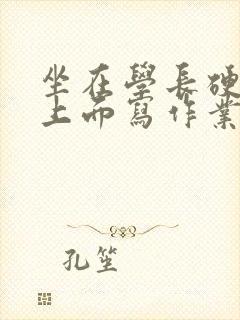 坐在學長硬
上而寫作業
孔笙